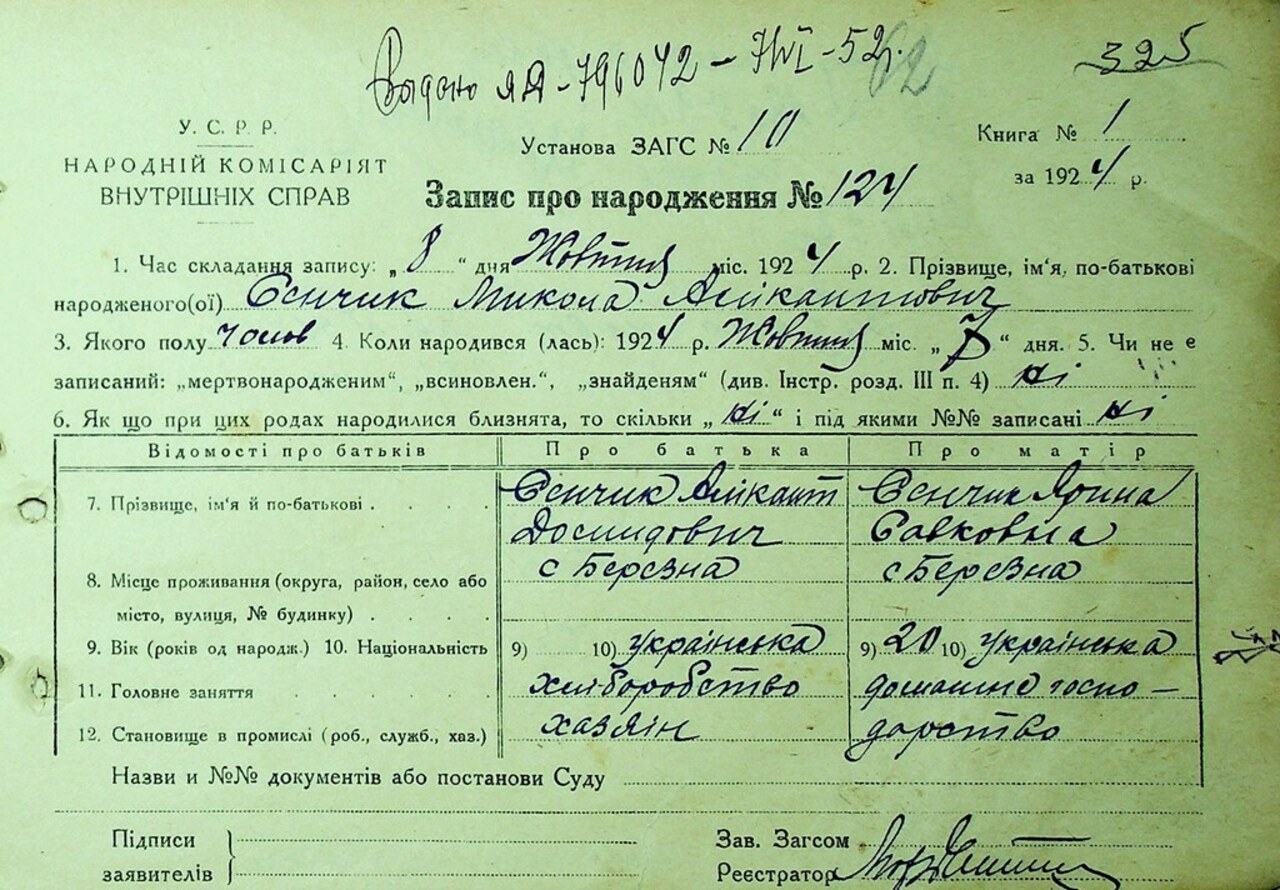 Выдано ЯА-796042 - 7/VI-52г.
62
325
У. С. Р. Р.
НАРОДНІЙ КОМІСАРІЯТ
ВНУТРІШНІХ СПРАВ
Установа ЗАГС № 10
Книга № 1
за 1924 р.
Запис про народження № 124
1. Час складання запису: „ 8 “ дня Жовтня міс. 1924 р. 2. Прізвище, ім'я, по-батькові
народженого(ої) Сенчик Микола Анікантович
3. Якого полу чолов 4. Коли народився (лась): 1924 р. Жовтня міс. „ 7 “ дня. 5. Чи не є
записаний: „мертвонародженим“, „всиновлен.“, „знайденям“ (див. Інстр. розд. III п. 4) ні
6. Як що при цих родах народилися близнята, то скільки „ ні “ і під якими №№ записані ні
Відомості про батьків Про батька Про матір
7. Прізвище, ім'я й по-батькові . . . . Сенчик Анікант Сенчик Ярина
Досидович Савковна
8. Місце проживання (округа, район, село або с Березна с Березна
місто, вулиця, № будинку) . . . .
9. Вік (років од народж.) 10. Національність 9) 10) українська 9) 20 10) українська
11. Головне заняття . . . . . . хліборобство домашнє госпо-
12. Становище в промислі (роб., служб., хаз.) хазяїн дарство
Назви и №№ документів або постанови Суду
Підписи
заявителів
Зав. Загсом
Реєстратор